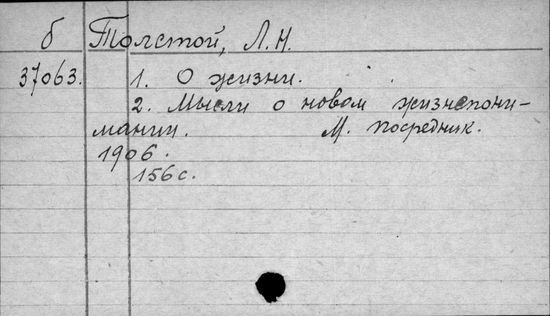 б Толстой, Л.Н.
37063. 1. О жизни.
2. Мысли о новом жизнепони-
мании. М. Посредник.
1906.
156с.